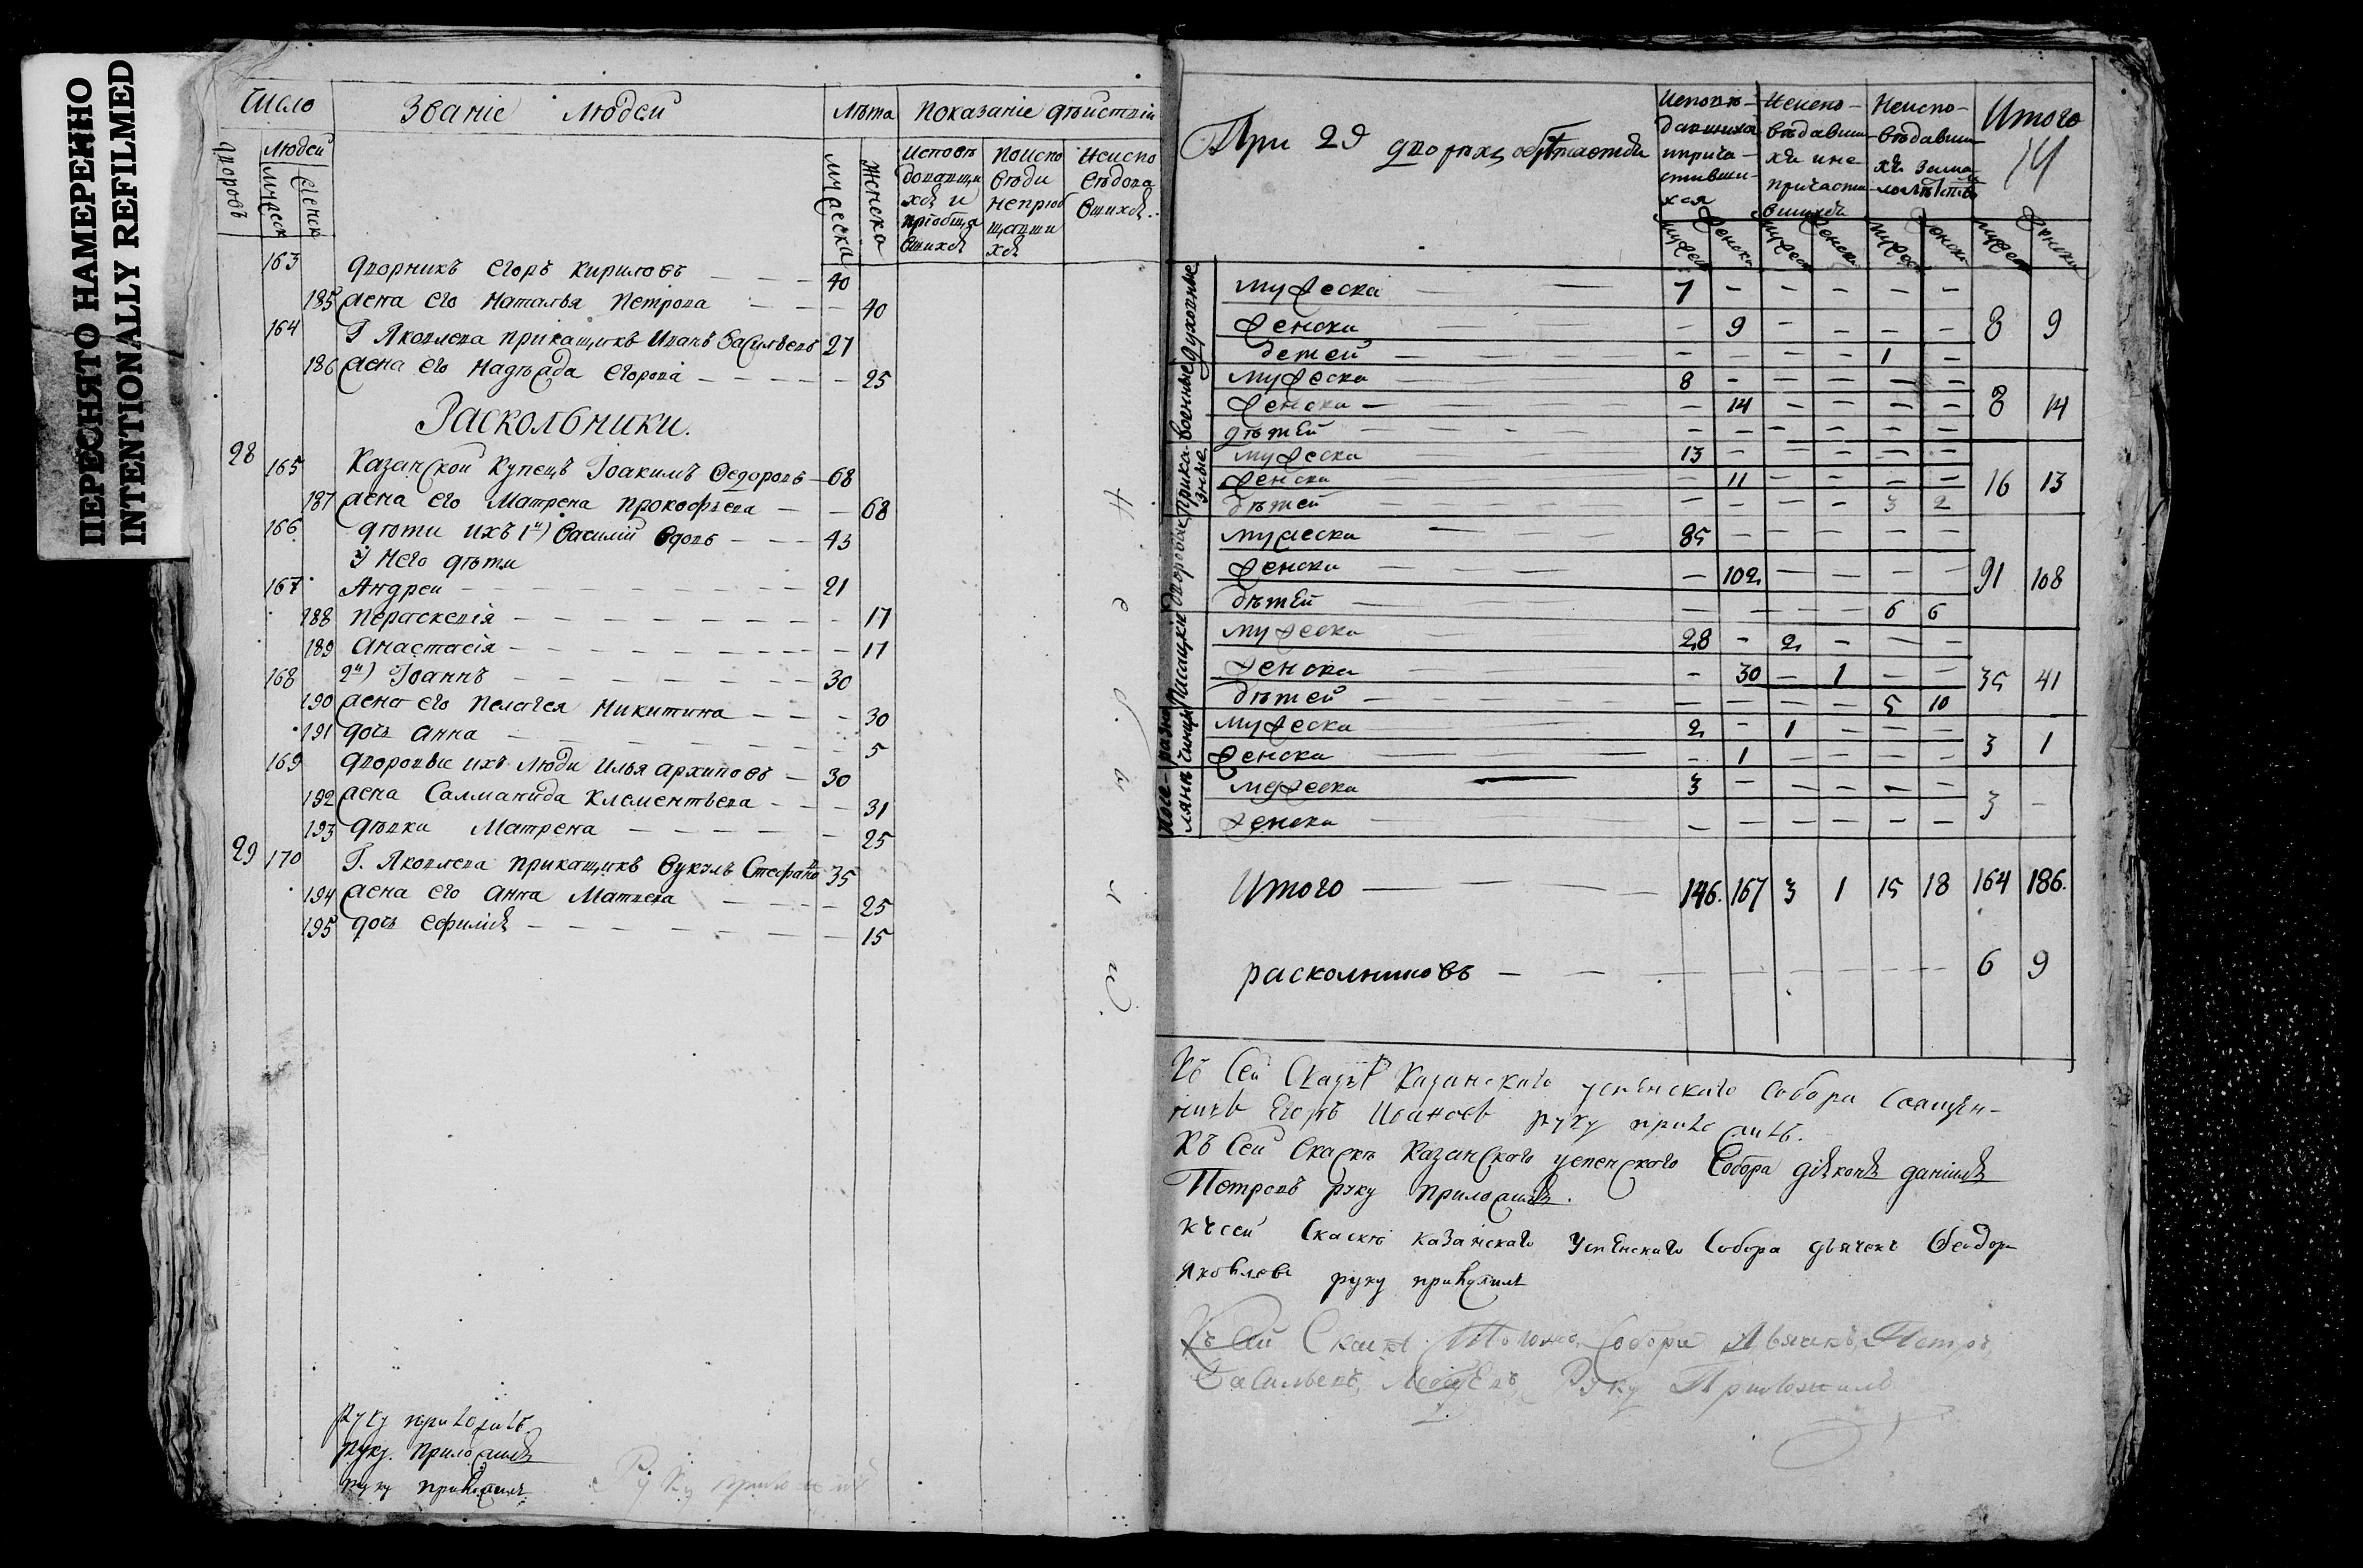 ПЕРЕСНЯТО НАМЕРЕННО
INTENTIONALLY REFILMED
Число Званіе людей Лѣта Показаніе дѣйствій
дворовъ людей мужеск женск мужеска женска
Исповѣдовавшихъ и пріобщавшихъ
По исповѣди непріобщавшихъ
Неисповѣдовавшихъ
163 дворникъ Егоръ Кириловъ 40
185 жена его Наталья Петрова 40
164 Г Яковлева прикащикъ Иванъ Васильевъ 27
186 жена его Надѣжда Егорова 25
Раскольники.
28 165 Казанской купецъ Іоакимъ Ѳедоровъ 68
187 жена его Матрена Прокофьева 68
166 дѣти ихъ 1й) Василий вдовъ 43
У него дѣти
167 Андреи 21
188 Пераскевія 17
189 Анастасія 17
168 2й) Іоаннъ 30
190 жена его Пелагея Никитина 30
191 дочь Анна 5
169 дворовые ихъ люди Илья Архиповъ 30
192 жена Салманида Клементьева 31
193 дѣвки Матрена 25
29 170 Г. Яковлева прикащикъ Вукулъ Стефановъ 35
194 жена его Анна Матвева 25
195 дочь Ефимія 15
Не были.
руку приложилъ.
руку приложилъ
руку приложилъ
Руку приложилъ
При 29 дворѣхъ обѣтаетъ
Исповѣдавшихъ и причастившихся
Неисповѣдавшихъ и непричастившихся
Неисповѣдавшихъ за малолѣтствъ
Итого
14
мужеск женска мужеск женска мужеск женска мужеск женска
Духовные мужеска 7 – – – – –
женска – 9 – – – – 8 9
детей – – – – 1 –
Военные мужеска 8 – – – – –
женска – 14 – – – – 8 14
дѣтей – – – – – –
Приказные мужеска 13 – – – – –
женска – 11 – – – – 16 13
дѣтей – – – – 3 2
Дворовые мужеска 85 – – – – –
женска – 102 – – – – 91 108
дѣтей – – – – 6 6
Пасацкіе мужеска 28 – 2 – – –
женска – 30 – 1 – – 35 41
дѣтей – – – – 5 10
разночинцы мужеска 2 – 1 – – –
женска – 1 – – – – 3 1
поселянъ мужеска 3 – – – – –
женска – – – – – – 3 –
Итого 146. 167 3 1 15 18 164 186.
раскольниковъ 6 9
Къ сей сказкѣ Казанскаго успѣнскаго собора священ-
никъ Егоръ Ивановъ руку приложилъ.
Къ сей скаскѣ Казанского успенского собора діяконъ данішлъ
Петровъ руку приложилъ.
къ сей скаскѣ казанскаго Успѣнскаго собора дьячекъ Ѳеодоръ
Яковлевъ руку приложилъ
Къ сей скаскѣ собора Дьячекъ Петръ
Васильевъ, Руку Приложилъ